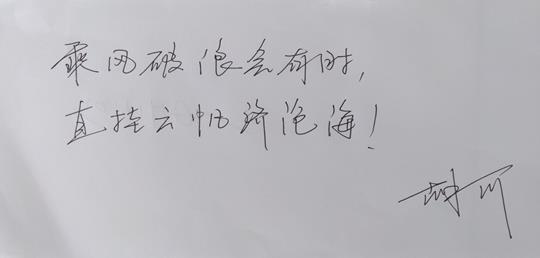 乘风破浪会有时，
直挂云帆济沧海！